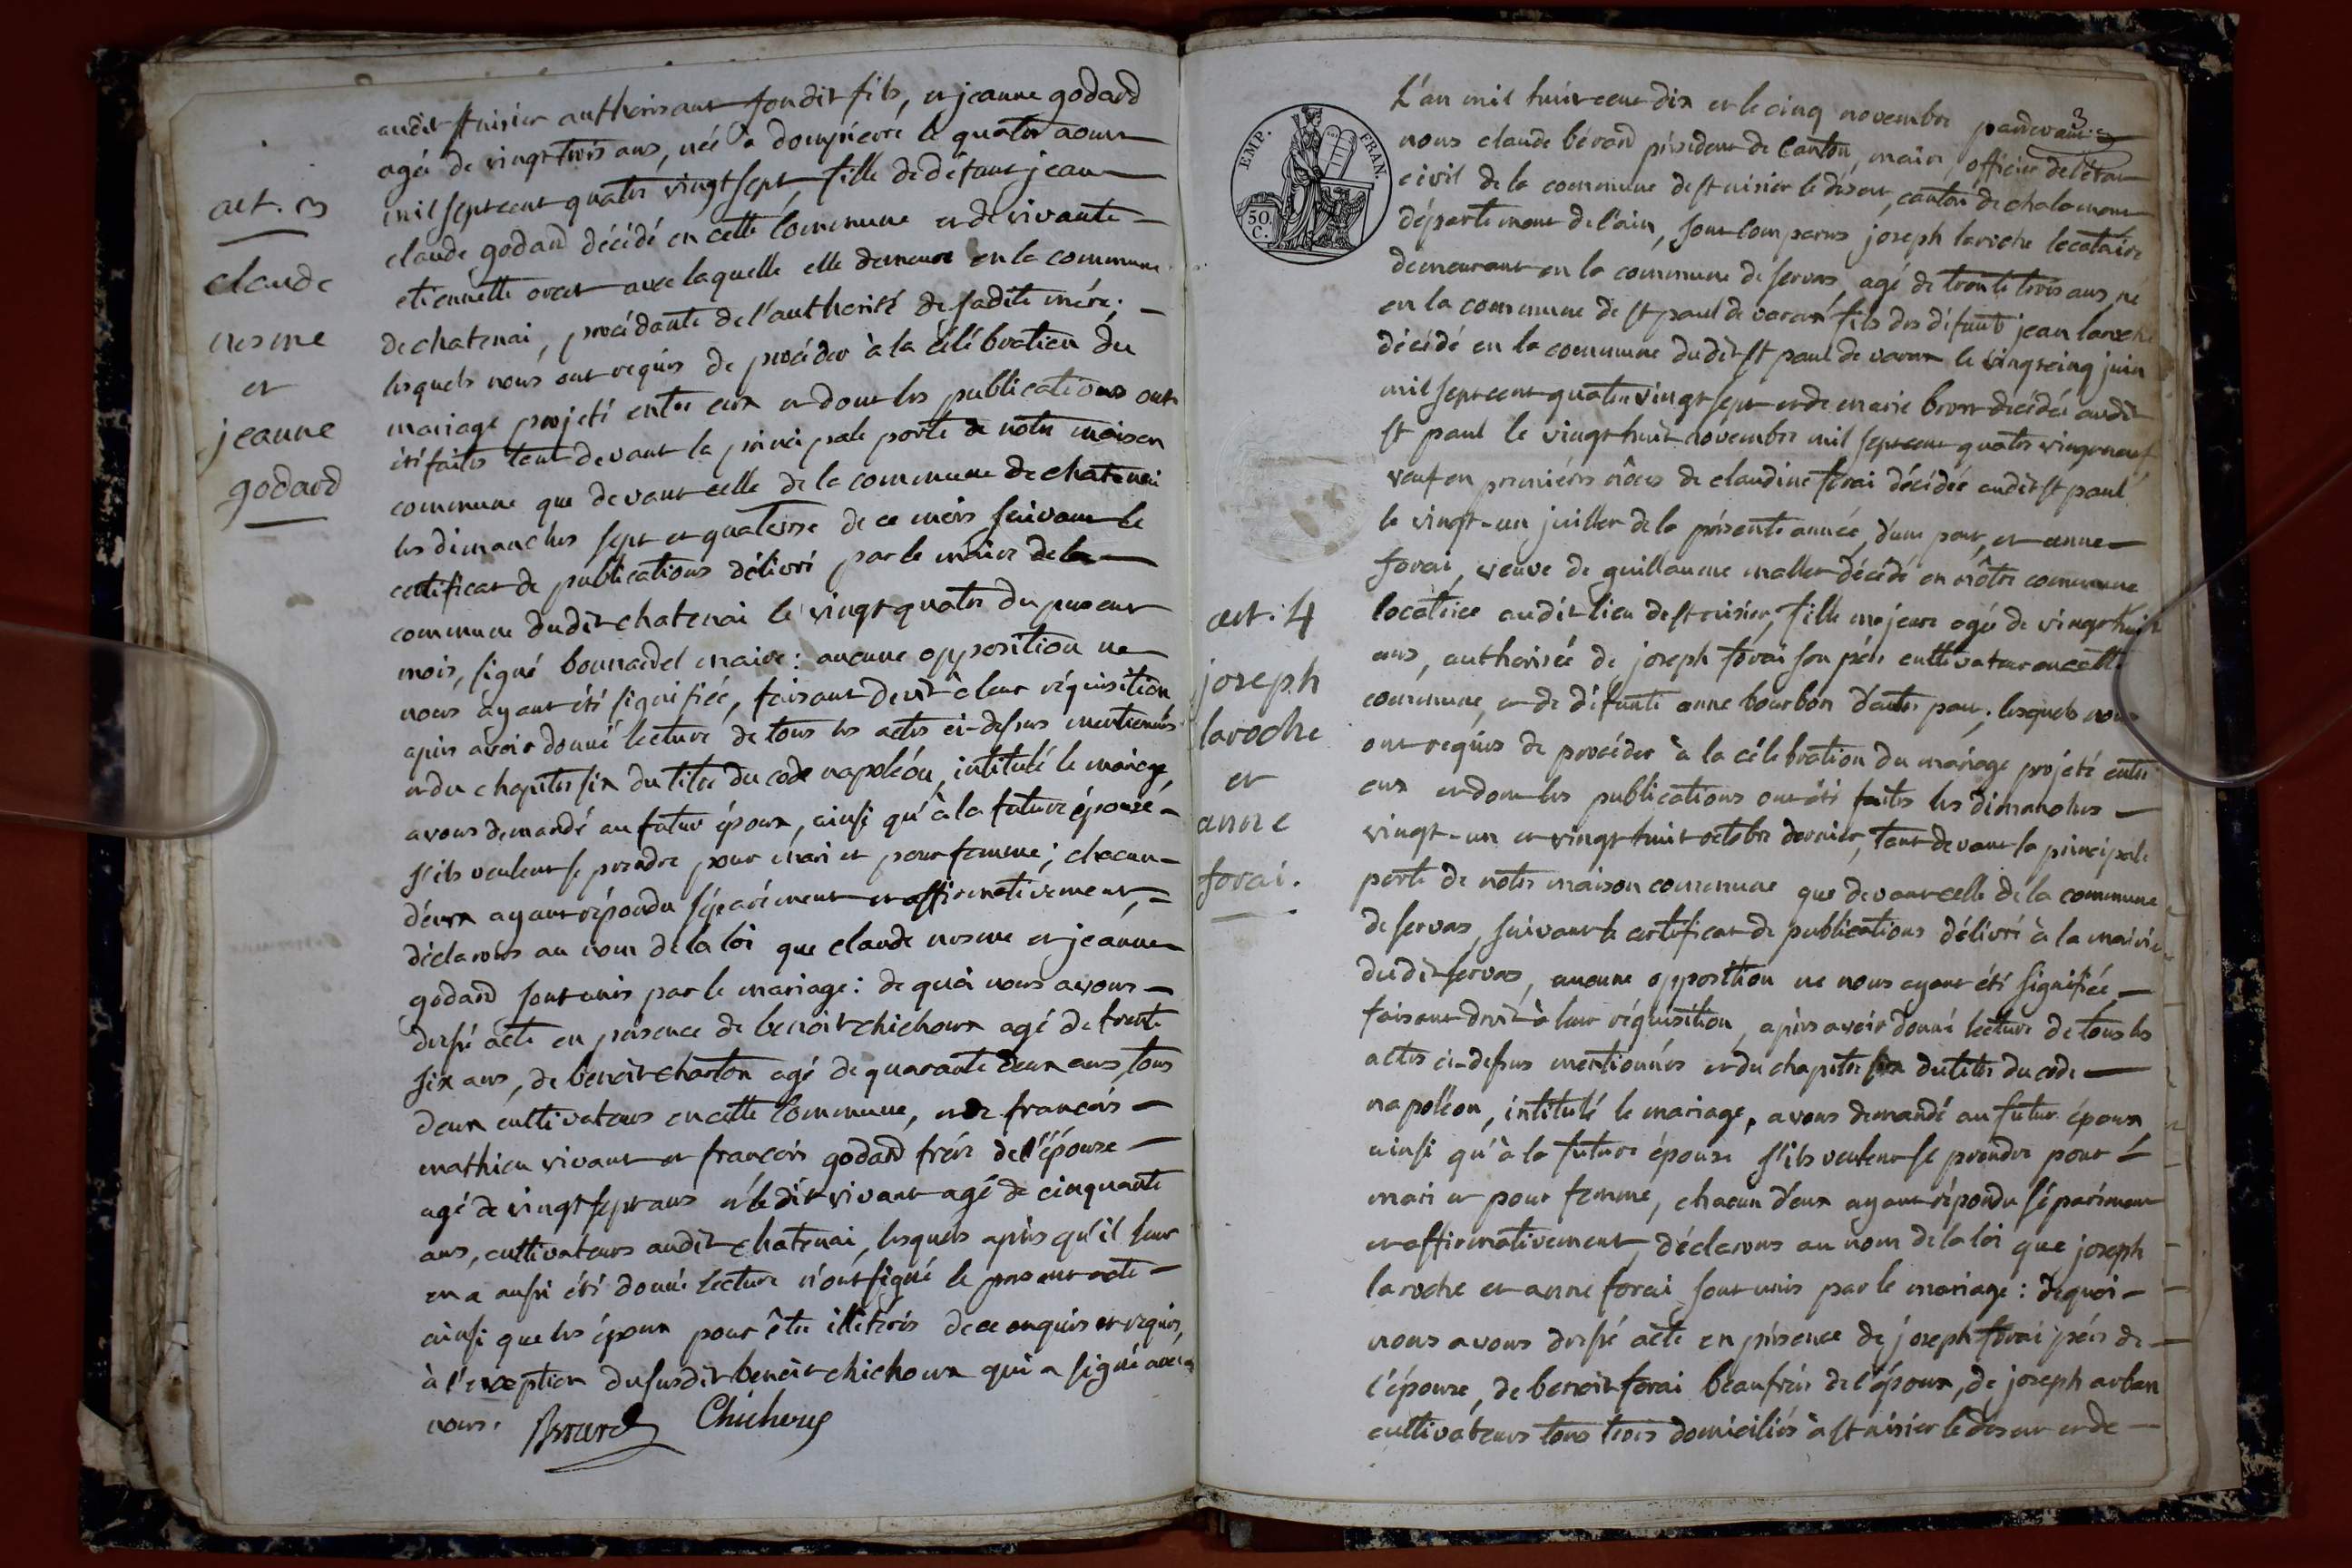 art. 3
claude
nesme
et
jeanne
godard
audit st nisier authorisant sondit fils, et jeanne godard
agée de vingt trois ans, née à dompierré le quatre aoust
mil sept cent quatre vingt sept, fille de défunt jean
claude godard décédé en cette commune et de vivante
etiennette avec laquelle elle demeure en la commune
de chatenai, procédante de l'authorité de sadite mére;
lesquels nous ont requis de procéder à la célébration du
mariage projeté entre eux et dont les publications ont
été faites tant devant la principale porte de notre maison
commune que devant celle de la commune de chatenai
les dimanches sept et quatorse de ce mois suivant le
certificat de publications délivré par le maire de la
commune dudit chatenai le vingt quatre du present
mois, signé bonnardel maire: aucune opposition ne
nous ayant été signifiée, faisant droit à leur réquisition
après avoir donné lecture de tous les actes ci-dessus mentionnés
et du chapitre six du titre du code napoléon, intitulé le mariage,
avons demandé au futur époux, ainsi qu'à la future épouse
s'ils veulent se prendre pour mari et pour femme; chacun
d'eux ayant répondu séparément et affirmativement,
déclarons au nom de la loi que claude nesme et jeanne
godard sont unis par le mariage: de quoi nous avons
dressé acte en présence de benoit chichoux agé de trente
six ans, de benoit charton agé de quarante deux ans, tous
deux cultivateurs en cette commune, et de françois
mathieu vivant et françois godard frére de l'épouse
agé de vingt sept ans et ledit vivant agé de cinquante
ans, cultivateurs audit chatenai, lesquels après qu'il leur
en a aussi été donné lecture n'ont signé le present acte
ainsi que les époux pour être illitérés de ce enquis et requis,
à l'exception du susdit benoit chichoux qui a signé avec
nous. Berard Chicheux
EMP. FRAN.
50 C.
3
art. 4
joseph
laroche
et
anne
forai.
L'an mil huit cent dix et le cinq novembre pardevant
nous claude bérard président de Canton, maire, officier de l'état
civil de la commune de st nisier le désert, canton de chalamont
département de l'ain, sont comparus joseph laroche locataire
demeurant en la commune de servas, agé de trente trois ans, né
en la commune de st paul de varax fils des défunts jean laroche
décédé en la commune dudit st paul de varax le vingt cinq juin
mil sept cent quatre vingt sept et de marie décédée audit
st paul le vingt huit novembre mil sept cent quatre vingt neuf
veuf en premières nôces de claudine forai décédée audit st paul
le vingt-un juillet de la présente année, d'une part, et anne
forai, veuve de guillaume mallet décédé en nôtre commune
locatrice audit lieu de st nisier, fille majeure agée de vingt huit
ans, authorisée de joseph forai son pére cultivateur en cette
commune, et de défunte anne bourbon d'autre part; lesquels nous
ont requis de procéder à la célébration du mariage projeté entre
eux et dont les publications ont été faites les dimanches
vingt-un et vingt huit octobre dernier, tant devant la principale
porte de notre maison commune que devant celle de la commune
de servas, suivant le certificat de publications délivré à la mairie
dudit servas, aucune opposition ne nous ayant été signifiée,
faisant droit à leur réquisition, après avoir donné lecture de tous les
actes ci-dessus mentionnés et du chapitre six du titre du code
napoléon, intitulé le mariage, avons demandé au futur époux
ainsi qu'à la future épouse s'ils veulent se prendre pour
mari et pour femme, chacun d'eux ayant répondu séparément
et affirmativement, déclarons au nom de la loi que joseph
laroche et anne forai sont unis par le mariage: de quoi
nous avons dressé acte en présence de joseph forai pére de
l'épouse, de benoit forai beaufrére de l'époux, de joseph arban
cultivateurs tous trois domiciliés à st nisier le désert et de